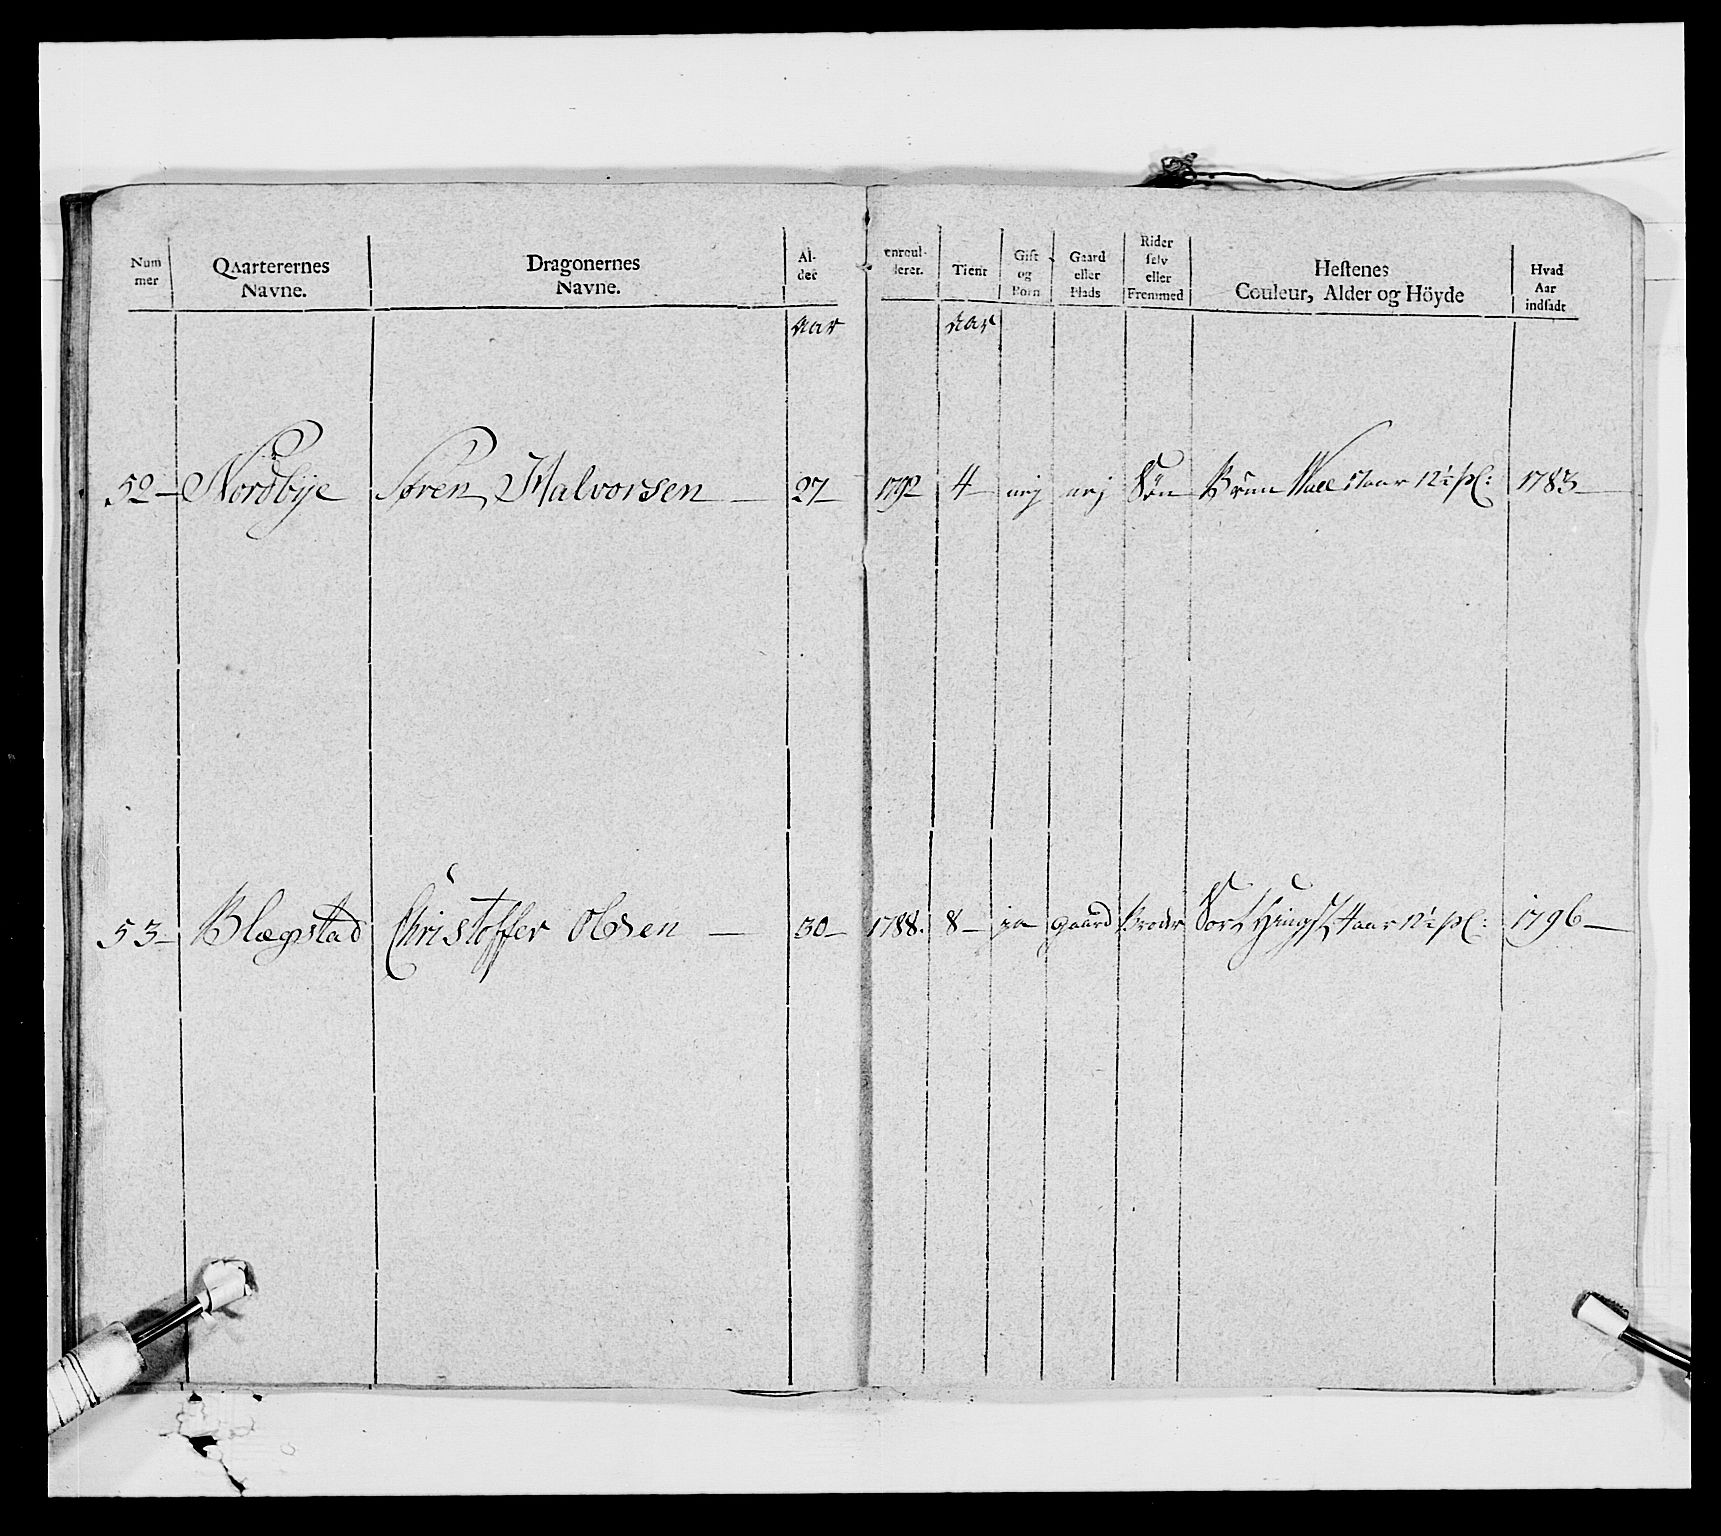 Num
mer
Qvarterernes
Navne.
Dragonernes
Navne.
Al-
der
enroul-
lerer.
Tient
Gift
og
Born
Gaard
eller
Plads
Rider
selv
eller
Fremmed
Heſtenes
Couleur, Alder og Höyde
Hvad
Aar
indſadt
Aar Aar
52— Nordbye Søren Halvorsen — 27 1792 4 nej nej Søn Bruun aar 1783—
53— Blægstad Christoffer Olssen — 30— 1788. 8— ja gaard Broder Sort Hingst 4 aar 1796—